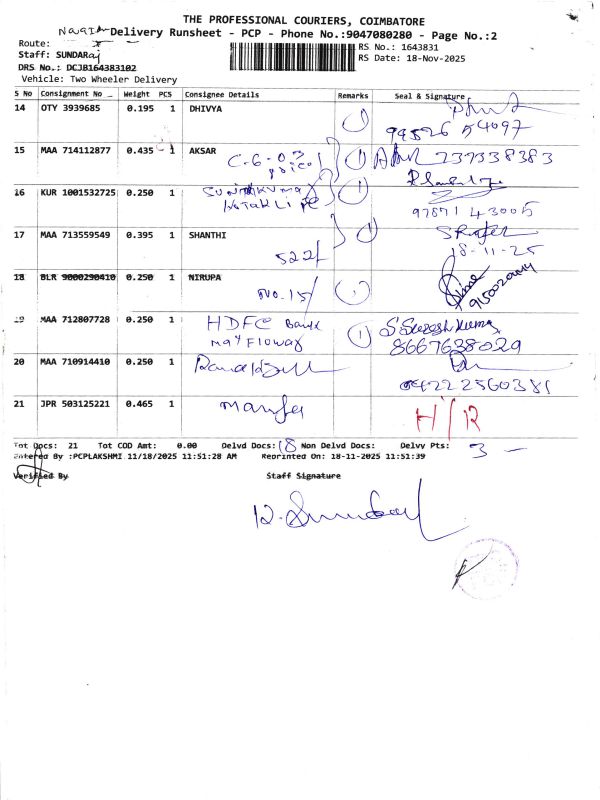 THE PROFESSIONAL COURIERS, COIMBATORE
Delivery Runsheet - PCP - Phone No.:9047080280 - Page No.:2
Route:
RS No.: 1643831
Staff: SUNDARaj
RS Date: 18-Nov-2025
DRS No.: DCJB164383102
Vehicle: Two Wheeler Delivery
S No Consignment No Weight PCS Consignee Details Remarks Seal & Signature
14 OTY 3939685 0.195 1 DHIVYA 1
99526 54097
15 MAA 714112877 0.435 1 AKSAR 1
C-6-03
16 KUR 1001532725 0.250 1 1
97871 43005
17 MAA 713559549 0.395 1 SHANTHI 1
522/ 18-11-25
18 BLR 9000290410 0.250 1 NIRUPA
NO.15/
19 MAA 712807728 0.250 1 HDFC Bank 1 S.Suresh Kumar
8667638029
20 MAA 710914410 0.250 1
04222560381
21 JPR 503125221 0.465 1 H/R
Tot Docs: 21 Tot COD Amt: 0.00 Delvd Docs: 18 Non Delvd Docs: Delvy Pts: 3
Entered By :PCPLAKSHMI 11/18/2025 11:51:28 AM Reprinted On: 18-11-2025 11:51:39
Verified By Staff Signature